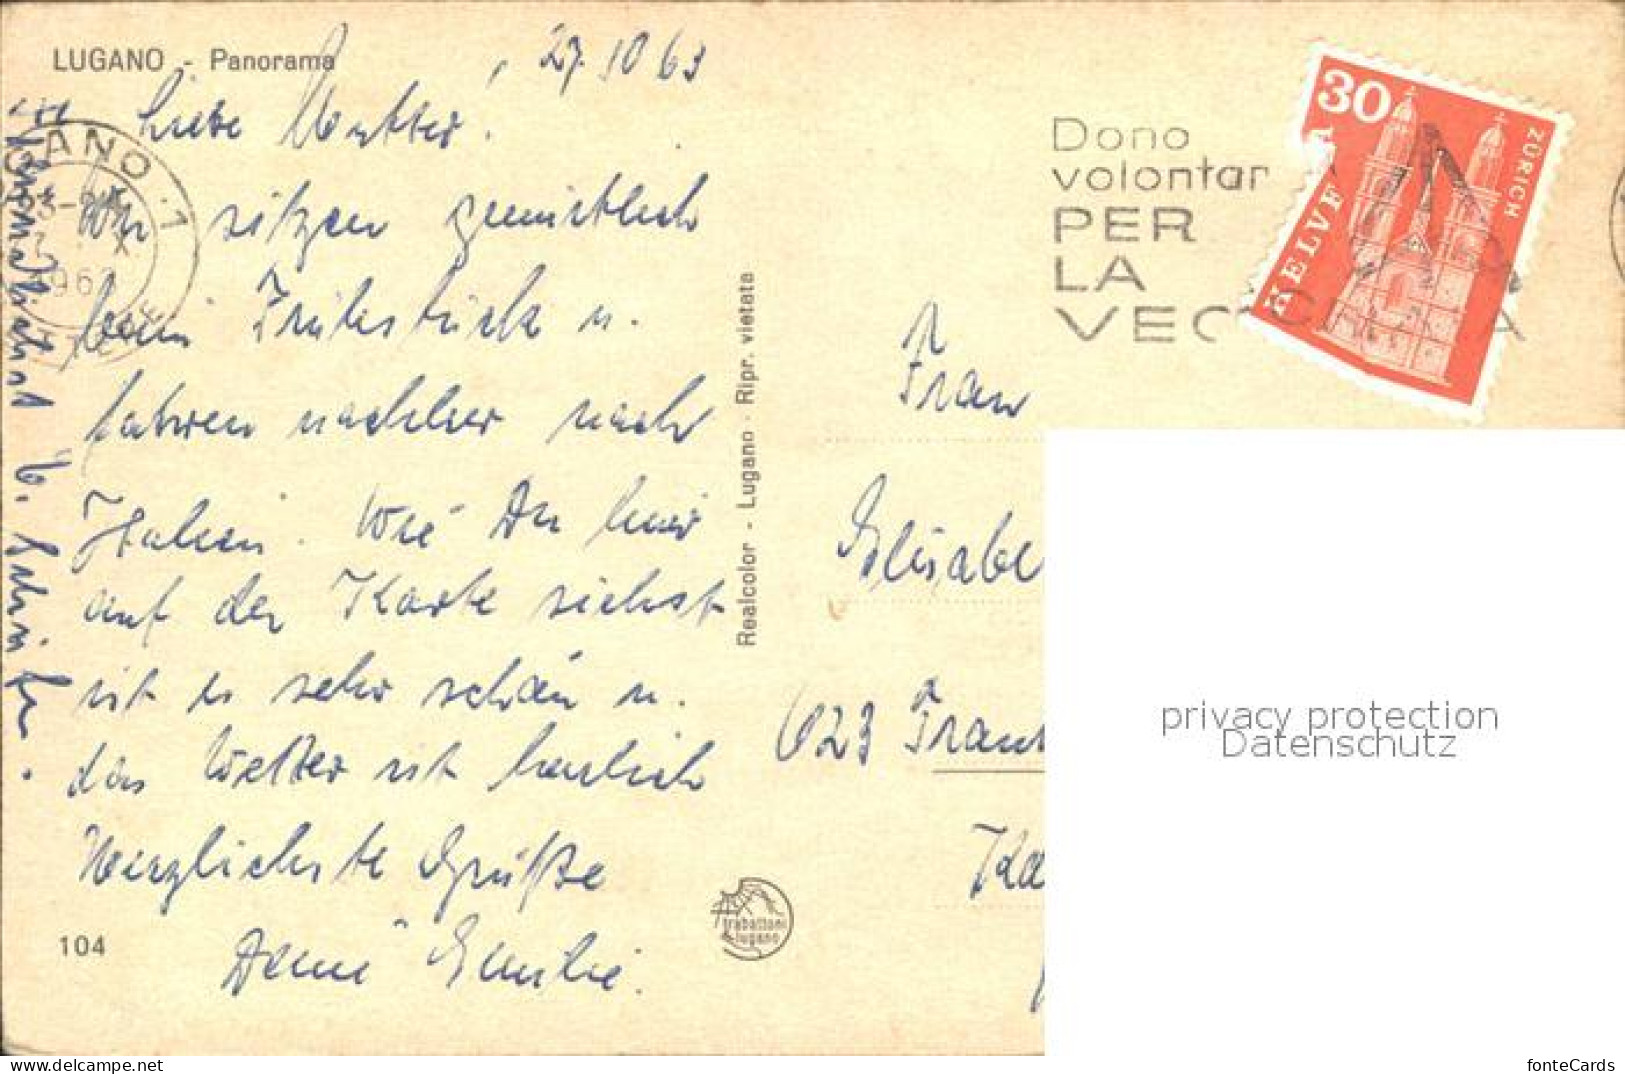 LUGANO - Panorama
27.10.63
Liebe Mutter!
Wir sitzen gemütlich
beim Frühstück u.
fahren nachher nach
Italien. Wie Du hier
auf der Karte siehst
ist es sehr schön u.
das Wetter ist herrlich
Herzlichste Grüße
Deine
104
Realcolor - Lugano - Ripr. vietata
trabattoni
lugano
ANO 1
Dono
volontar
PER
LA
VEC
A
30
HELVE
A
ZÜRICH
Frau
Elisabe
623 Fran
privacy protection
Datenschutz
fonteCards